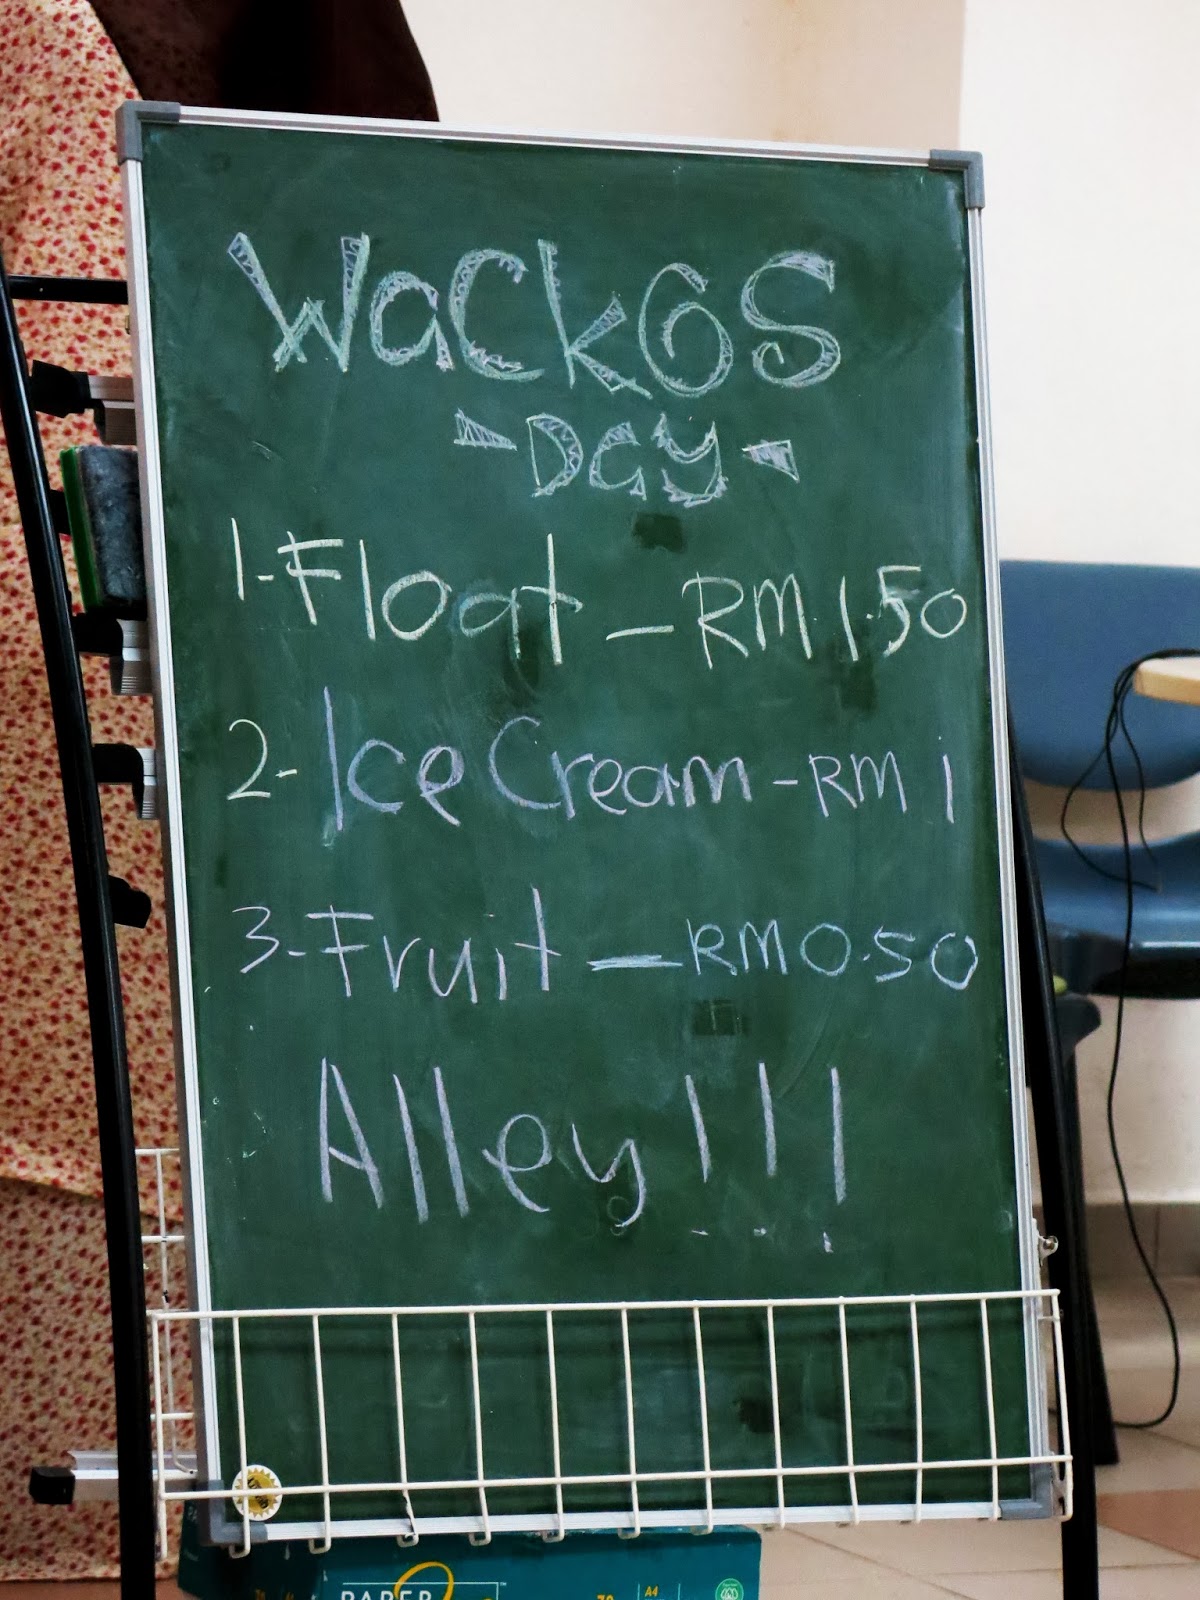 WackOS
Day
1-Float - RM 1.50
2-Ice Cream - RM 1
3-Fruit - RM 0.50
Alley!!!
PAPER
A4